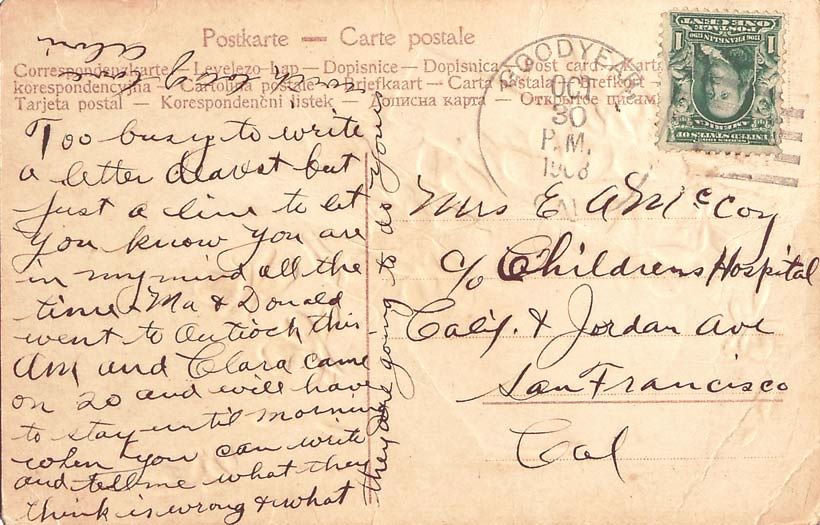 Postkarte — Carte postale
Correspondenzkarte — Levelezo-Lap — Dopisnice — Dopisnica — Post card — Karta
korespondencyjna — Cartolina postale — Briefkaart — Carta postala — Brefkort
Tarjeta postal — Korespondenčni listek — Дописна карта — Открытое письмо
GOODYEAR
OCT
30
P.M.
1908
CAL
1 1
POSTAGE
ONE CENT
FRANKLIN
SERIES 1902
UNITED STATES OF
AMERICA
Too busy to write
a letter dearest but
just a line to let
you know you are
in my mind all the
time. Ma & Donald
went to Antioch this
AM and Clara came
on 20 and will have
to stay until morning
when you can write
and tell me what they
think is wrong & what
they are going to do Yours
Mrs E A McCoy
c/o Childrens Hospital
Calif. & Jordan Ave
San Francisco
Cal